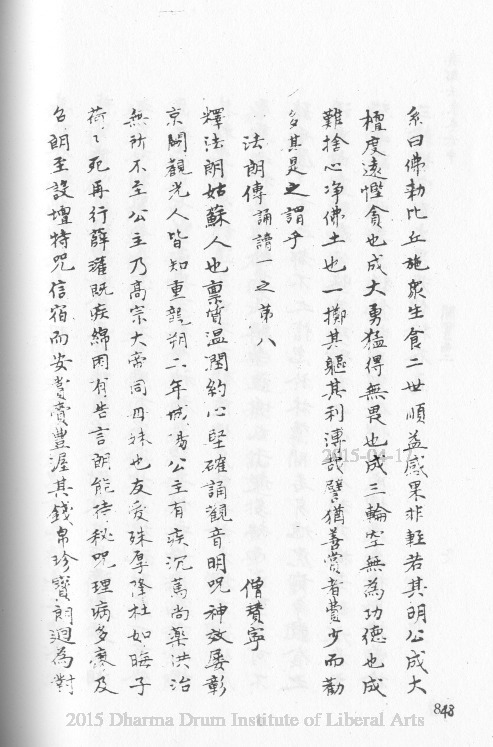 系曰佛勅比丘施衆生食二世順益感果非輕若其明公成大
檀度遠慳貪也成大勇猛得無畏也成三輪空無為功德也成
難捨心淨佛土也擲其軀其利溥哉譬猶善賞者費少而勸
多其是之謂乎
法朗傳 誦讀一之第八 僧贊寧
釋法朗姑蘇人也禀質溫潤約心堅確誦觀音明咒神效屢彰
京闕觀光人皆知重龍朔二年城陽公主有疾沉篤尚藥洪治
無所不至公主乃高宗大帝同母妹也友愛殊厚降杜如晦子
荷荷死再行薛瓘既疾綿困有告言朗能持秘咒理病多瘳及
召朗至設壇持咒信宿而安賞賚豊渥其錢帛珍寶朗迴為對
848
2015-04-17
2015 Dharma Drum Institute of Liberal Arts